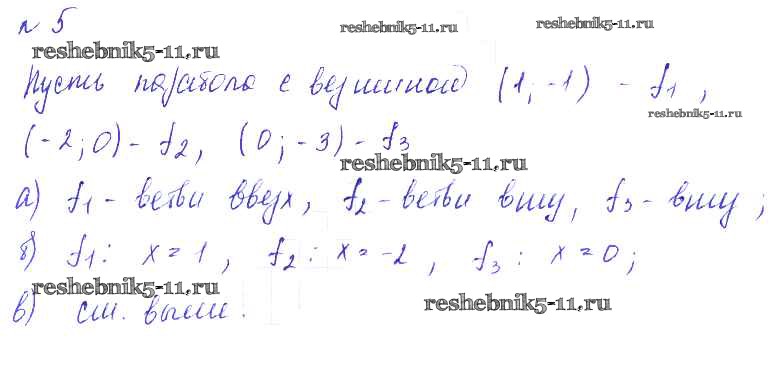 № 5
reshebnik5-11.ru reshebnik5-11.ru reshebnik5-11.ru
Пусть парабола с вершиной (1; -1) - f1,
reshebnik5-11.ru
(-2; 0) - f2, (0; -3) - f3
reshebnik5-11.ru
а) f1 - ветви вверх, f2 - ветви вниз, f3 - вниз;
б) f1: x = 1, f2: x = -2, f3: x = 0;
reshebnik5-11.ru reshebnik5-11.ru
в) см. выше.